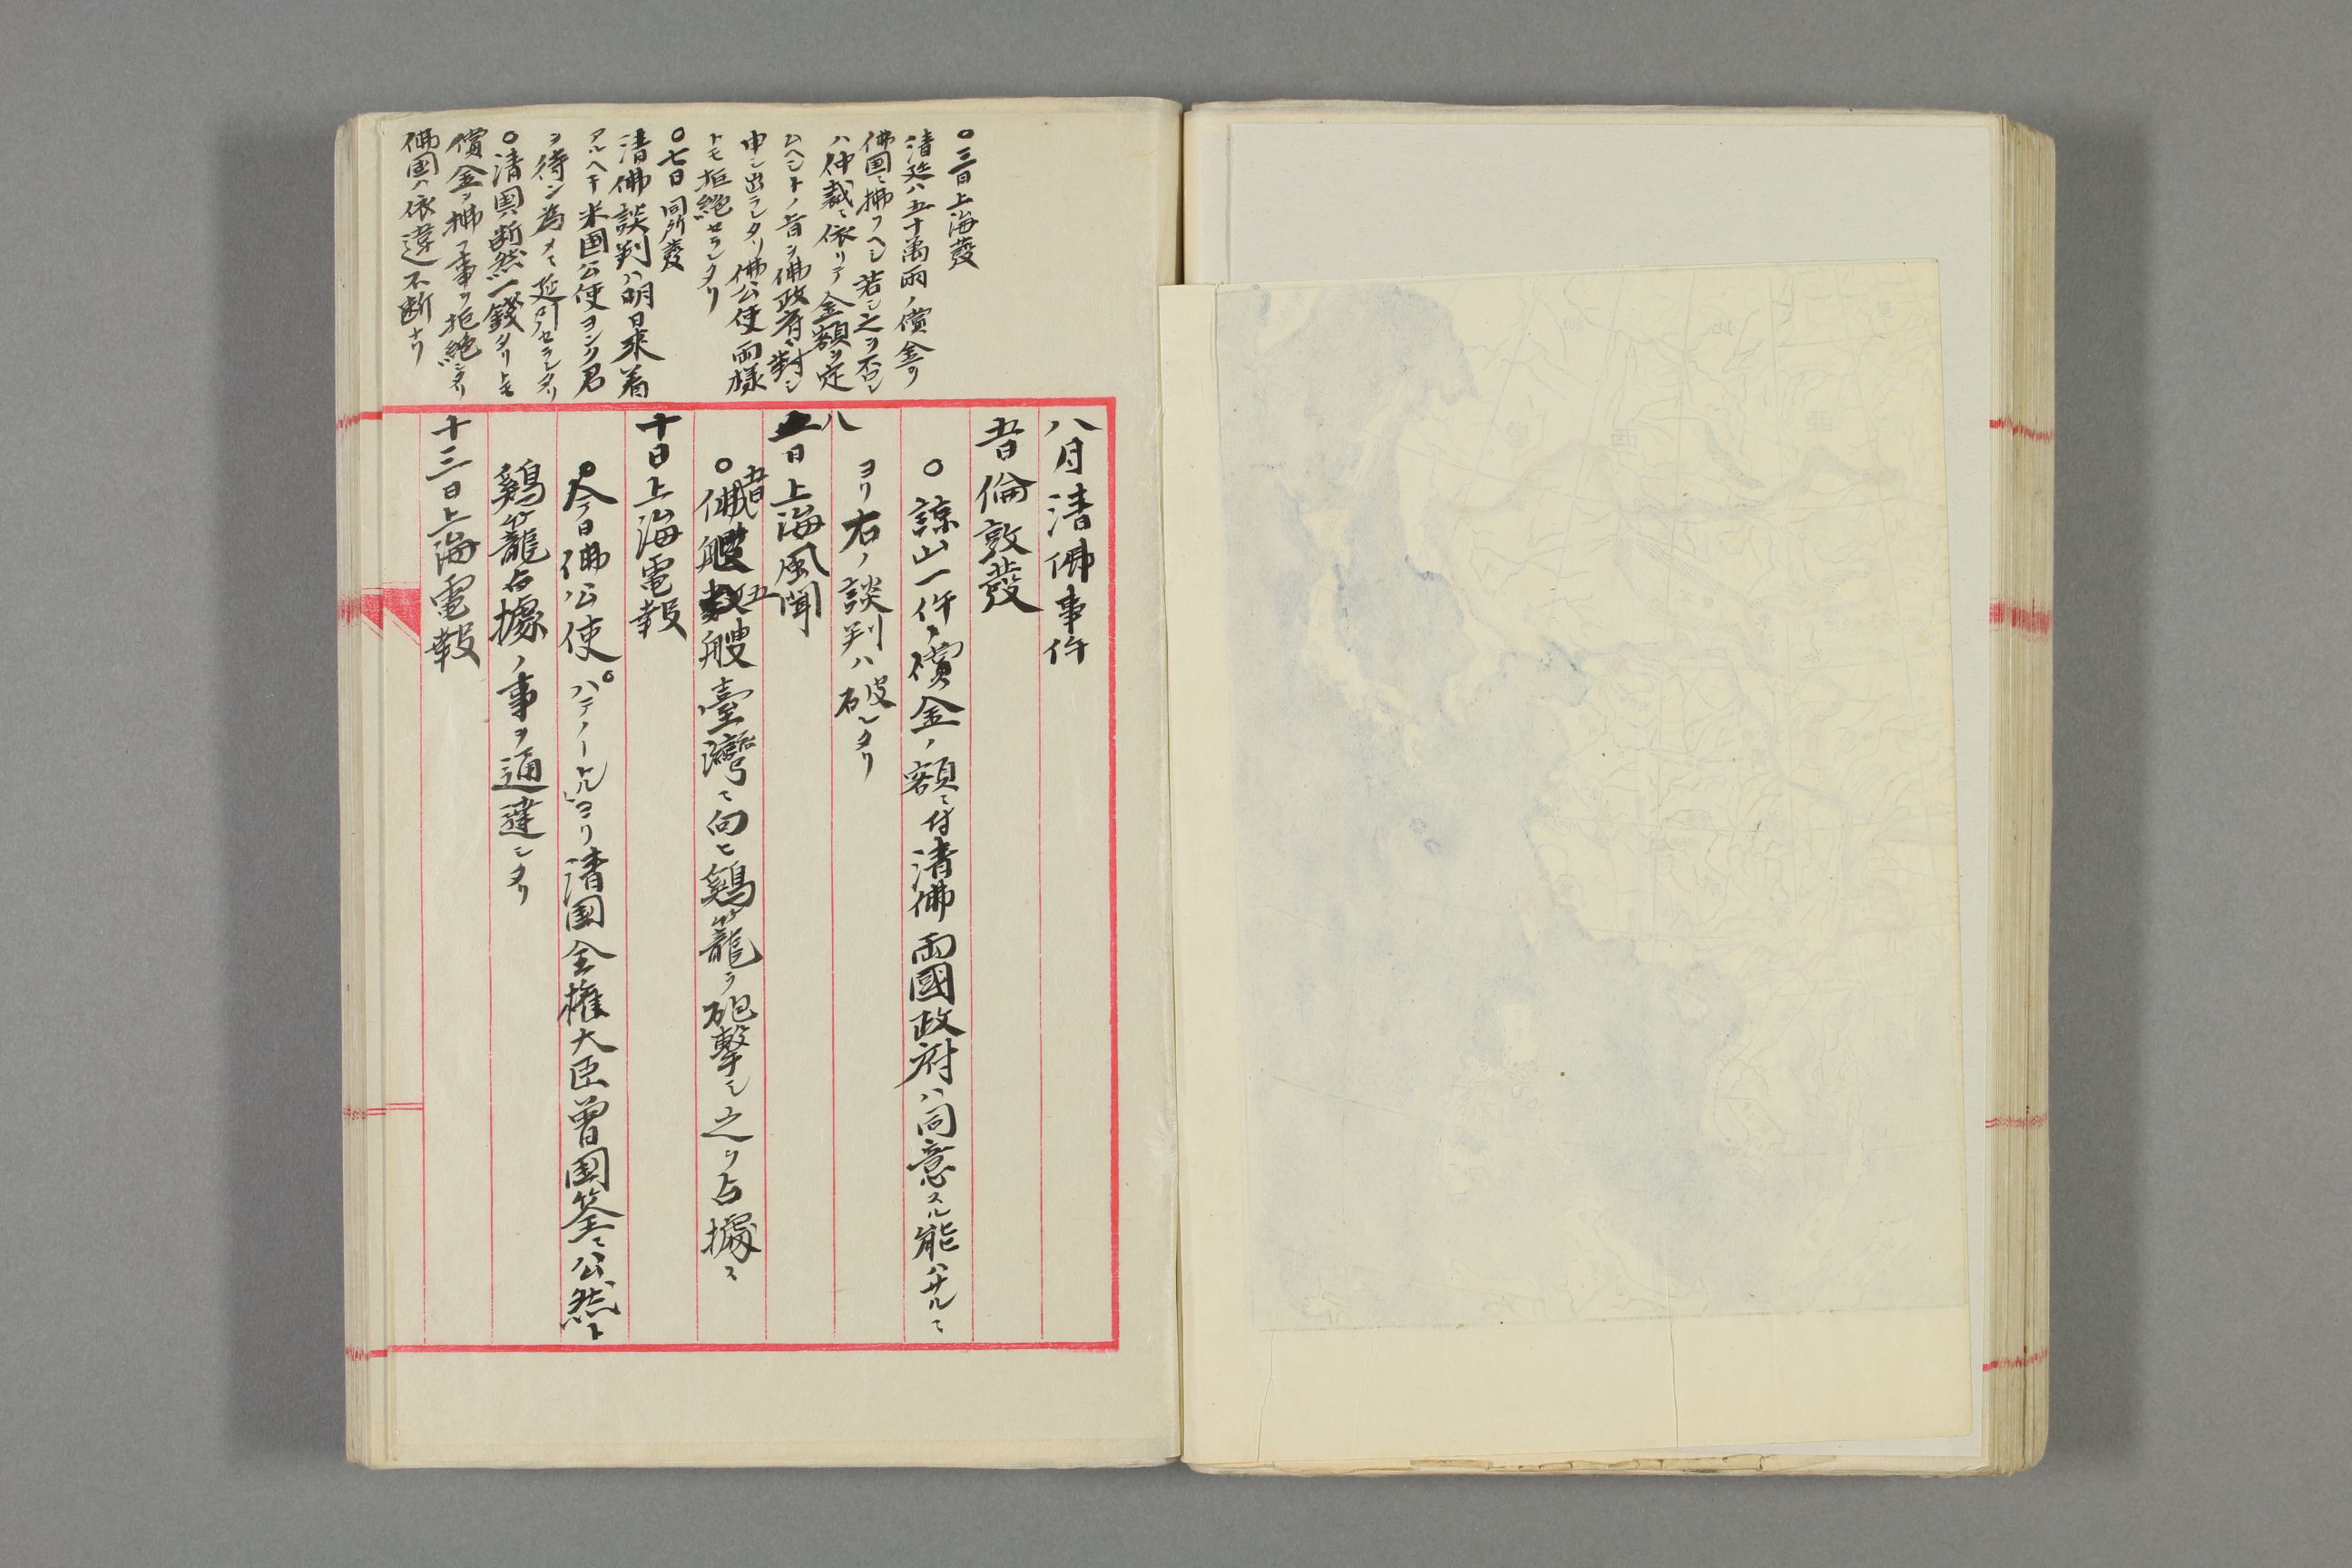 〇三日上海發
清廷ハ五十萬両ノ償金ヲ
佛国ニ拂フヘシ若シ之ヲ否ミ
ハ仲裁ニ依リテ金額ヲ定
ムヘシトノ旨ヲ佛政府ニ對シ
申シ出ラレタリ佛公使両様
トモ拒絶セラレタリ
〇七日同所發
清佛談判ハ明日来着
アルヘキ米国公使ヨング君
ヲ待ン為メニ延引セラレタリ
〇清国断然一錢タリトモ
償金ヲ拂フ事ヲ拒絶シタリ
佛国ハ依違不断ナリ
八月清佛事件
五日倫敦發
〇諒山一件ノ償金ノ額ニ付清佛両國政府ハ同意スル能ハサルニ
ヨリ右ノ談判ハ破レタリ
八日上海風聞
〇五日佛艦五艘臺灣ニ向ヒ鷄籠ヲ砲擊シ之ヲ占據ス
十日上海電報
〇今日佛公使パテノートル」ヨリ清国全権大臣曽国筌ニ公然ト
鷄籠占據ノ事ヲ通達シタリ
十三日上海電報